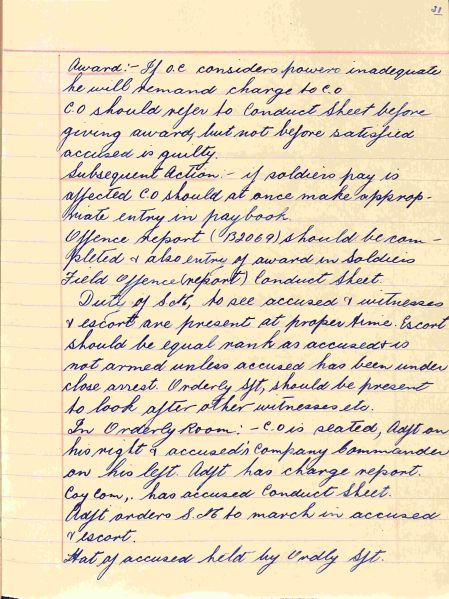 31
Award:- If O.C considers powers inadequate
he will remand charge to C.O
C.O should refer to Conduct Sheet before
giving award, but not before satisfied
accused is guilty.
Subsequent Action:- if soldiers pay is
affected C O should at once make approp-
riate entry in paybook.
Offence report (B2069) should be com-
pleted & also entry of award in Soldiers
Field Offence (report) Conduct Sheet.
Duty of S.M, to see accused & witnesses
& escort are present at proper time. Escort
should be equal rank as accused & is
not armed unless accused has been under
close arrest. Orderly Sjt, should be present
to look after other witnesses etc.
In Orderly Room:- C.O is seated, Adjt on
his right & accused's Company Commander
on his left. Adjt has charge report.
Coy Com,. has accused Conduct Sheet.
Adjt orders S.M to march in accused
& escort.
Hat of accused held by Ordly Sjt.